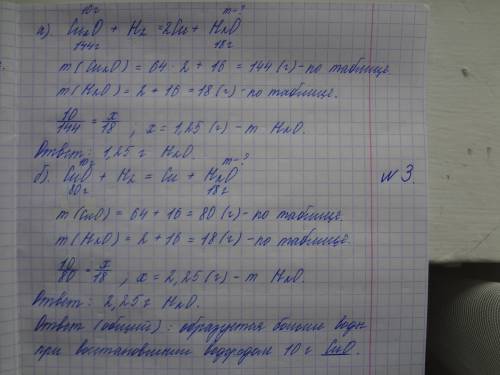 10г m-?
а). Cu₂O + H₂ = 2Cu + H₂O
144г 18г
m(Cu₂O) = 64 · 2 + 16 = 144 (г) - по таблице.
m(H₂O) = 2 + 16 = 18 (г) - по таблице.
10/144 = x/18 , x = 1,25 (г) - m H₂O.
Ответ: 1,25 г H₂O.
10г m-?
б). CuO + H₂ = Cu + H₂O
80г 18г
N 3.
m(CuO) = 64 + 16 = 80 (г) - по таблице.
m(H₂O) = 2 + 16 = 18 (г) - по таблице.
10/80 = x/18 , x = 2,25 (г) - m H₂O.
Ответ: 2,25 г H₂O.
Ответ (общий): образуется больше воды
при востановлении водородом 10 г CuO.